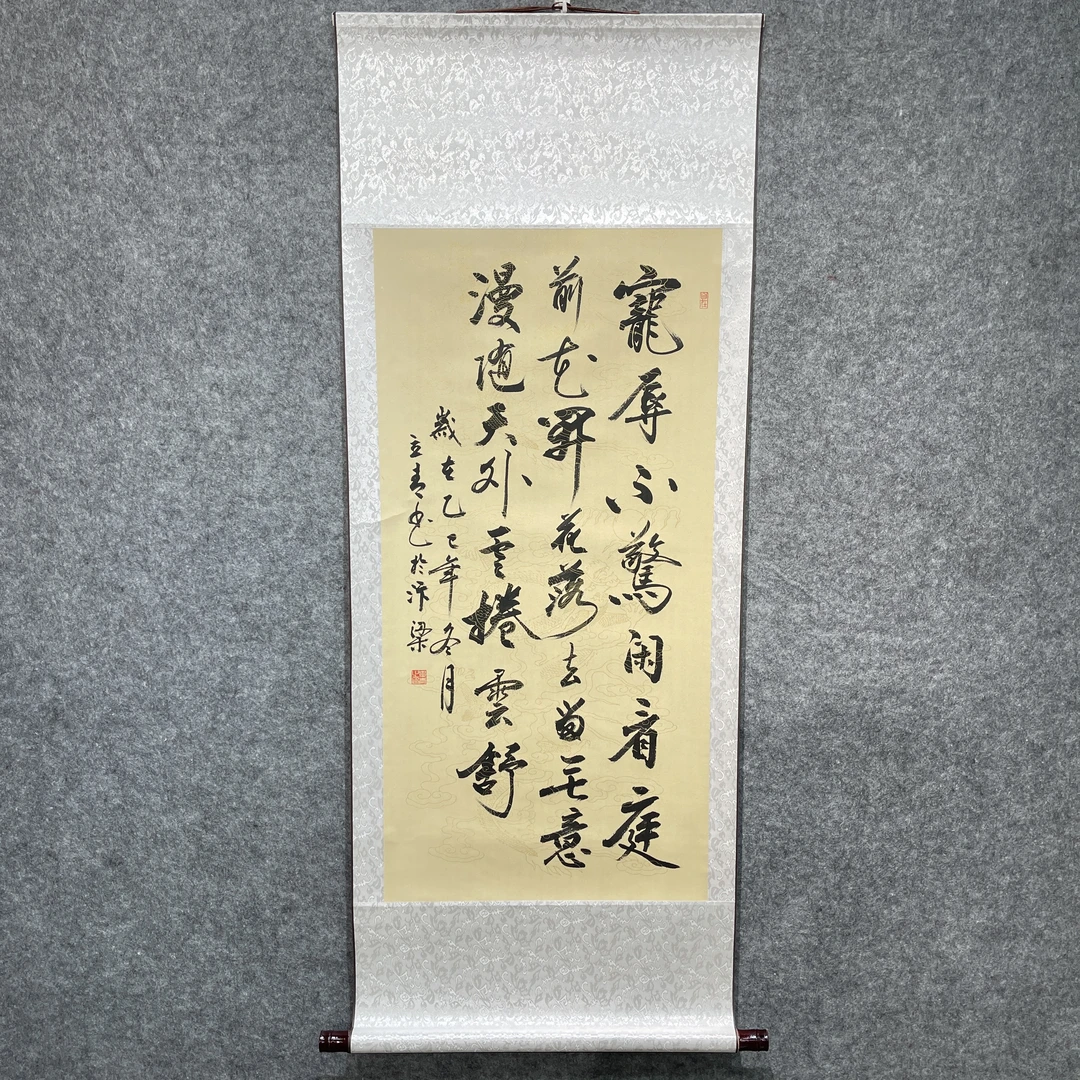 寵辱不驚閑看庭
前花開花落去留無意
漫随天外雲捲雲舒
歲在乙巳年冬月
立青书於汴梁